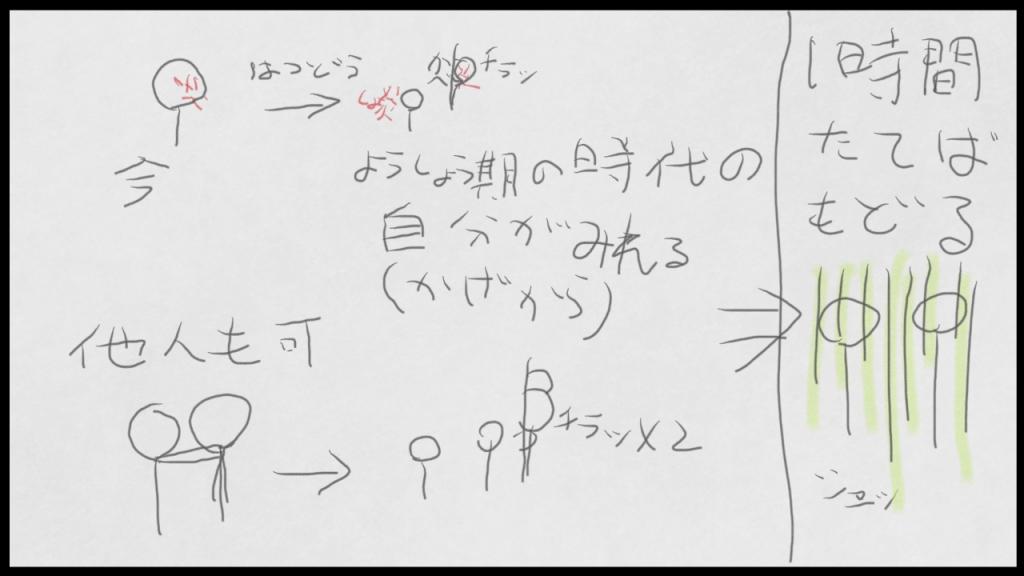 はつどう
チラッ
今
ようしょう期の時代の
自分がみれる
(かげから)
他人も可
チラッ×2
1時間
たてば
もどる
シュッ